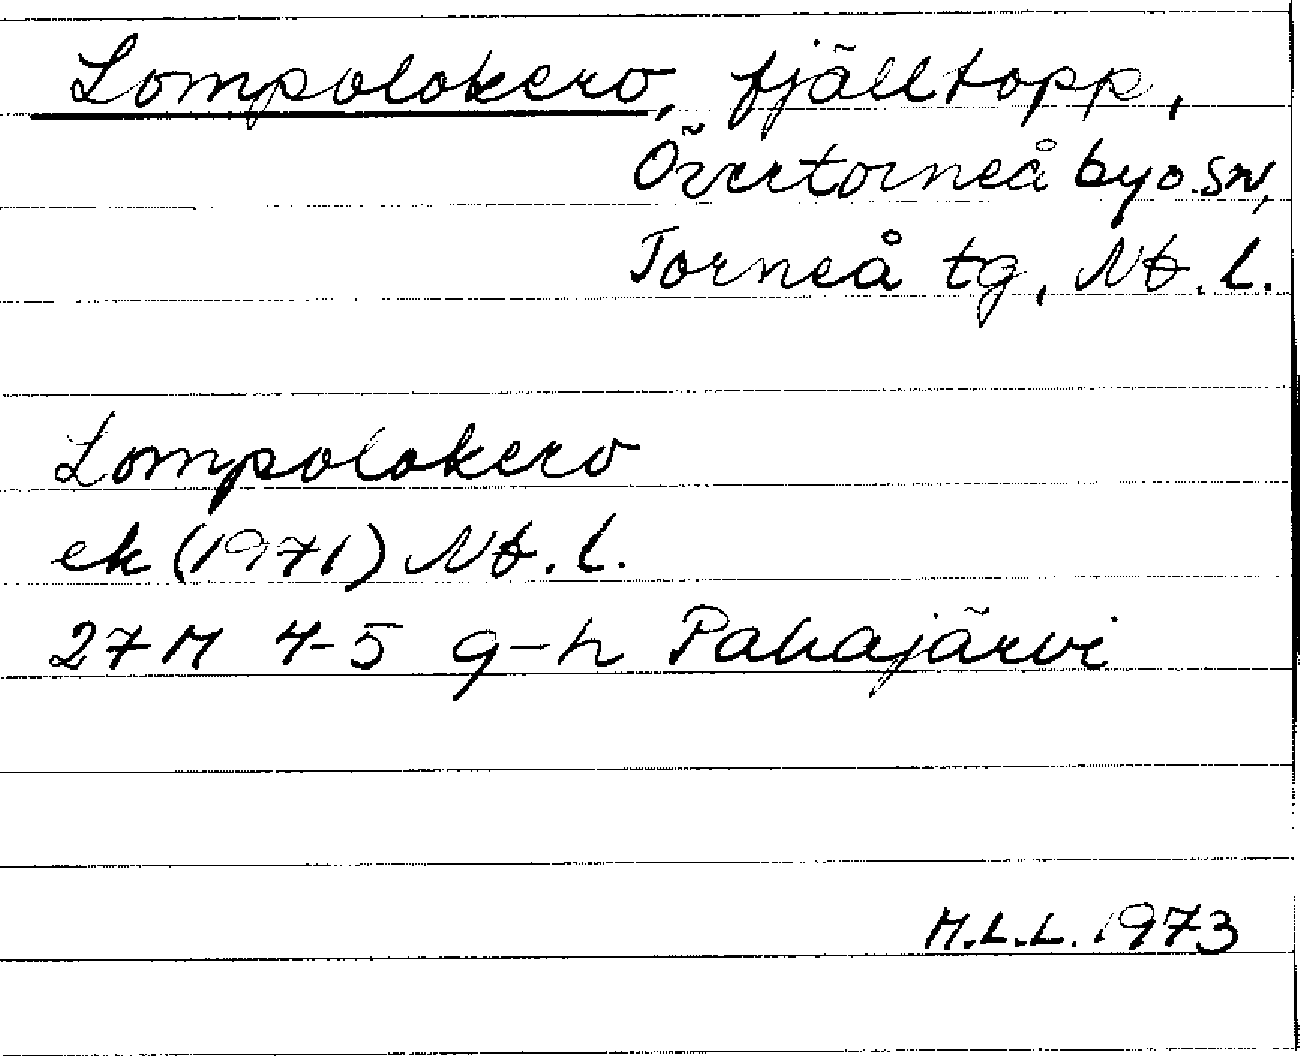 Lompolokero, fjälltopp,
Övertorneå byo.sn,
Torneå tg, Nb. l.
Lompolokero
ek (1971) Nb. l.
27M 4-5 g-h Pahajärvi
M.L.L. 1973